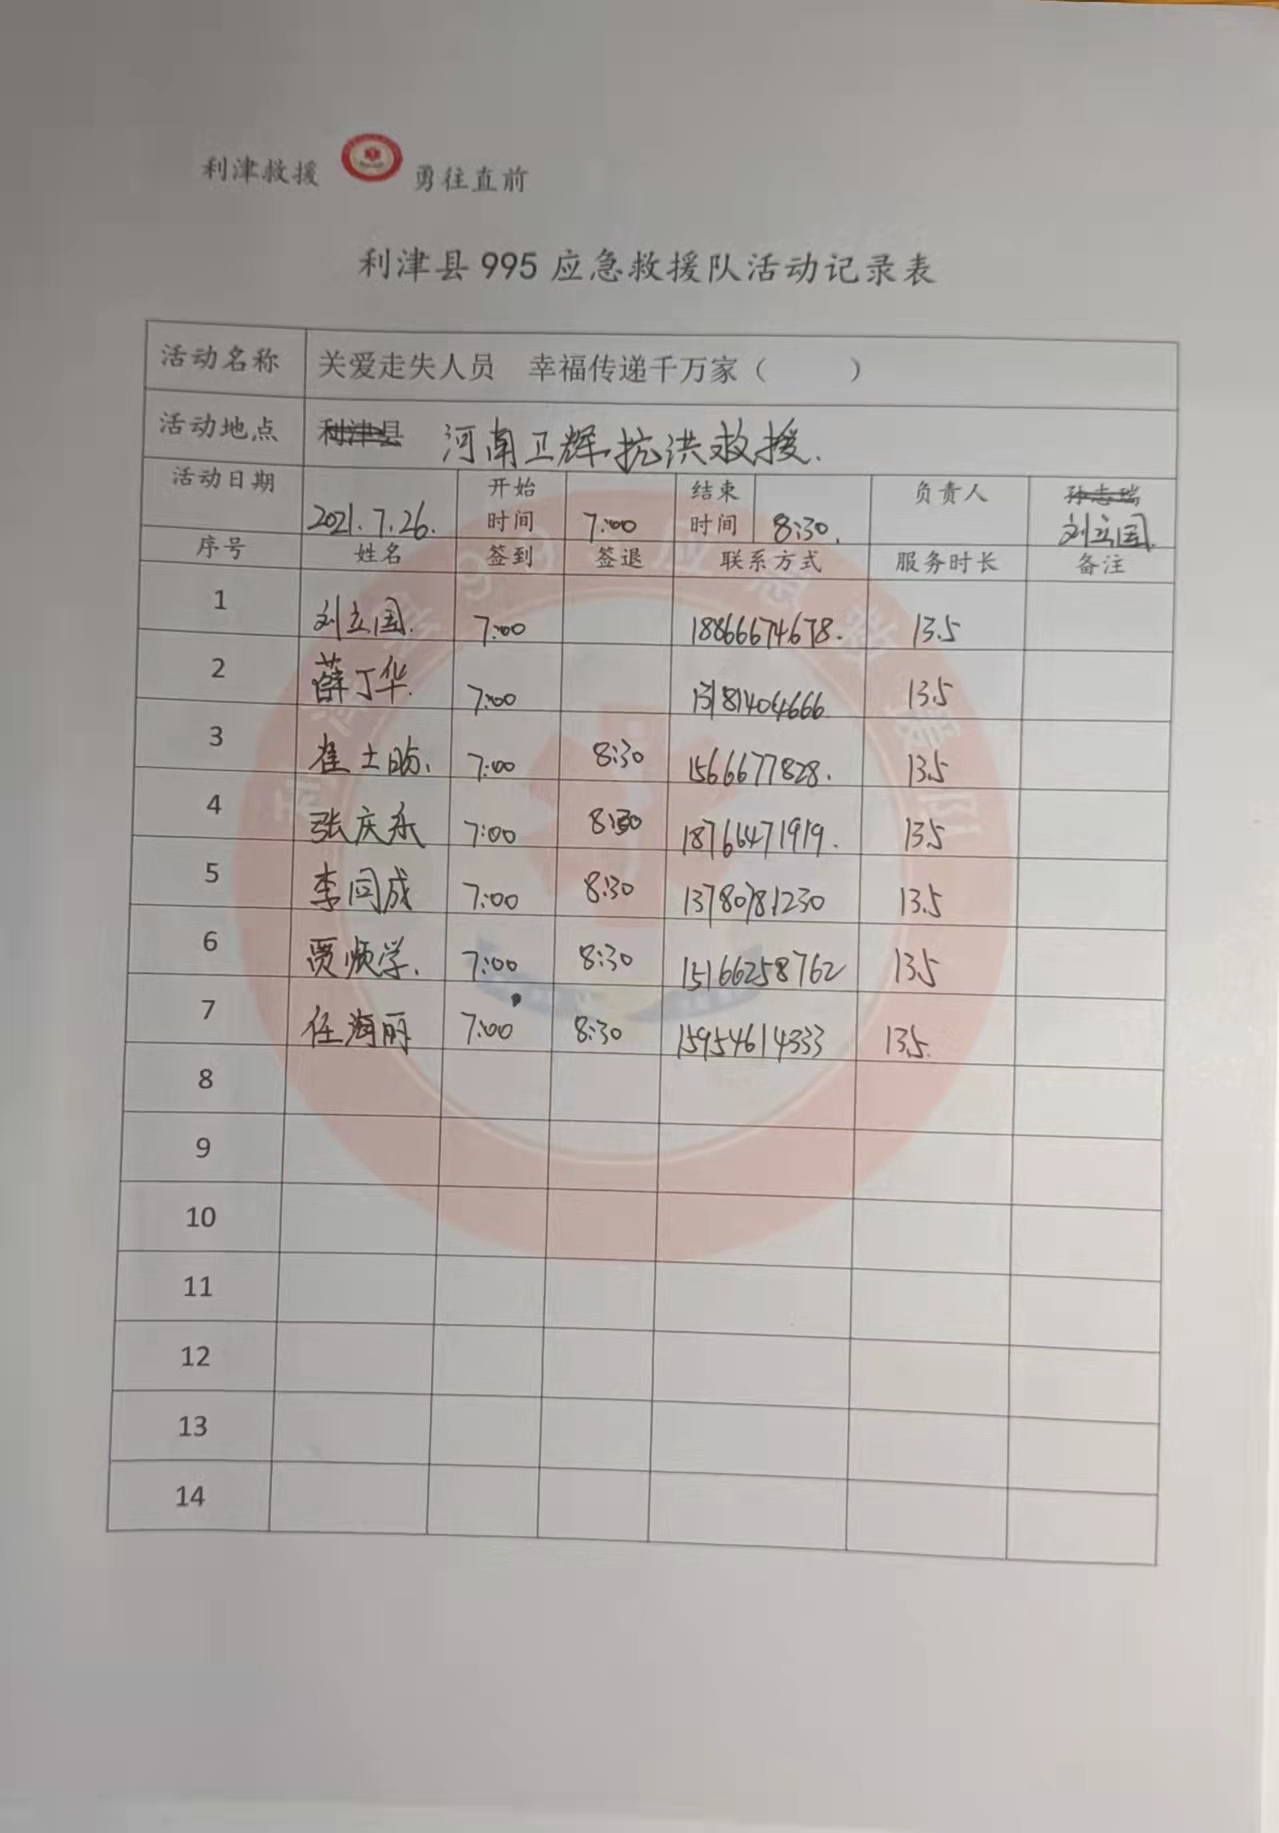 利津救援 勇往直前
利津县995应急救援队活动记录表
活动名称 关爱走失人员 幸福传递千万家（ ）
活动地点 利津县 河南卫辉抗洪救援.
活动日期 2021.7.26. 开始时间 7:00 结束时间 8:30. 负责人 孙志瑞 刘立国.
序号 姓名 签到 签退 联系方式 服务时长 备注
1 刘立国. 7:00 18866674678. 13.5
2 薛丁华. 7:00 13181404666 13.5
3 崔士 7:00 8:30 1566677828. 13.5
4 张庆永 7:00 8:30 18766471919. 13.5
5 李同成 7:00 8:30 13780781230 13.5
6 贾顺学. 7:00 8:30 15166258762 13.5
7 任海丽 7:00 8:30 15954614333 13.5.
8
9
10
11
12
13
14